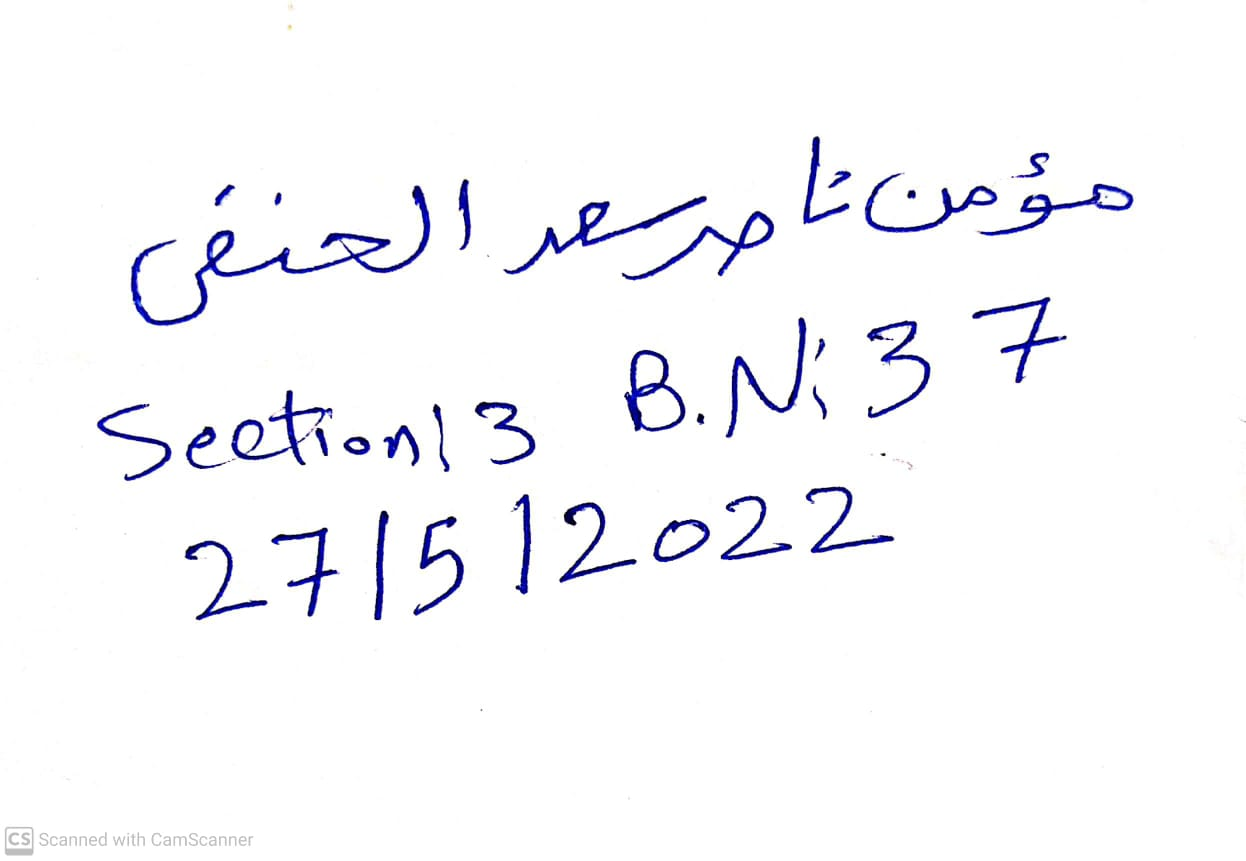 مؤمن ناصر سعد الحنفى
Section: 3 B.N: 37
27/5/2022
CS Scanned with CamScanner